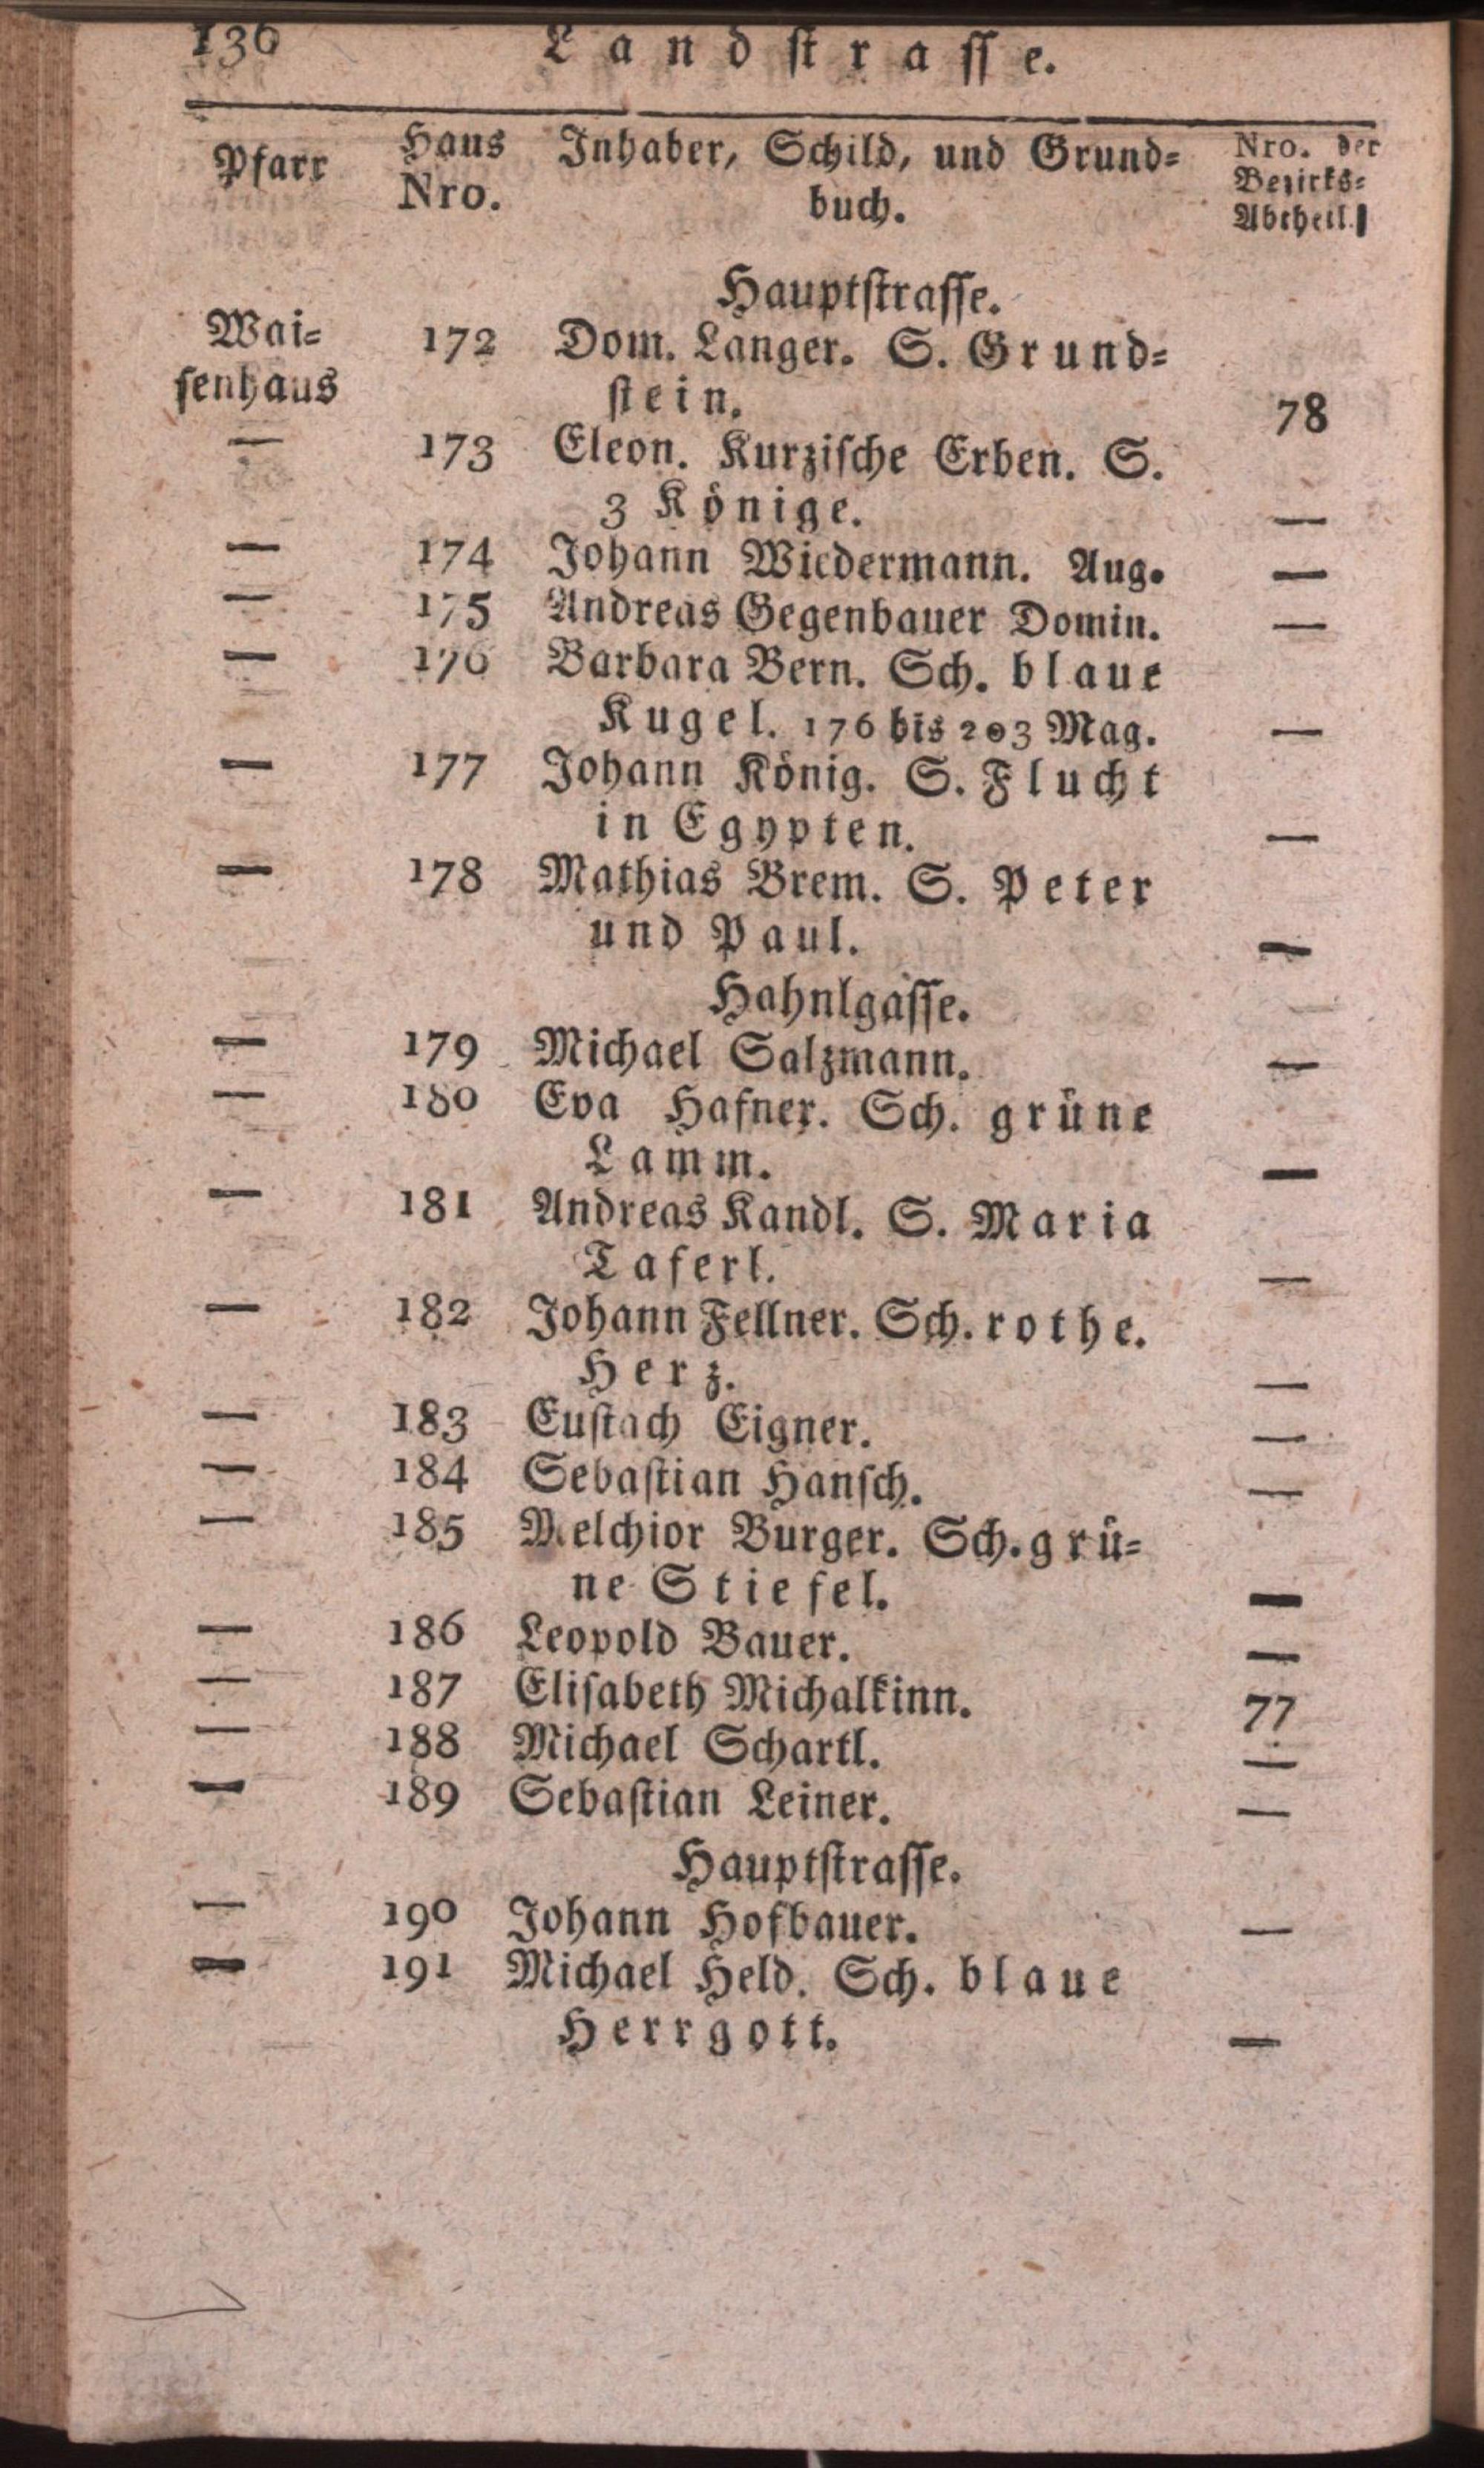 136 Landstrasse.
Pfarr Haus Nro. Inhaber, Schild, und Grund=
buch. Nro. der Bezirks= Abtheil.
Hauptstrasse.
Wai= 172 Dom. Langer. S. Grund=
senhaus stein. 78
— 173 Eleon. Kurzische Erben. S.
3 Könige. —
— 174 Johann Wiedermann. Aug. —
— 175 Andreas Gegenbauer Domin. —
— 176 Barbara Bern. Sch. blaue
Kugel. 176 bis 203 Mag. —
— 177 Johann König. S. Flucht
in Egypten. —
— 178 Mathias Brem. S. Peter
und Paul. —
Hahnlgasse.
— 179 Michael Salzmann. —
— 180 Eva Hafner. Sch. grüne
Lamm. —
— 181 Andreas Kandl. S. Maria
Taferl. —
— 182 Johann Fellner. Sch. rothe.
Herz. —
— 183 Eustach Eigner. —
— 184 Sebastian Hansch. —
— 185 Melchior Burger. Sch. grü=
ne Stiefel. —
— 186 Leopold Bauer. —
— 187 Elisabeth Michalkinn. 77
— 188 Michael Schartl. —
— 189 Sebastian Leiner. —
Hauptstrasse.
— 190 Johann Hofbauer. —
— 191 Michael Held. Sch. blaue
Herrgott. —